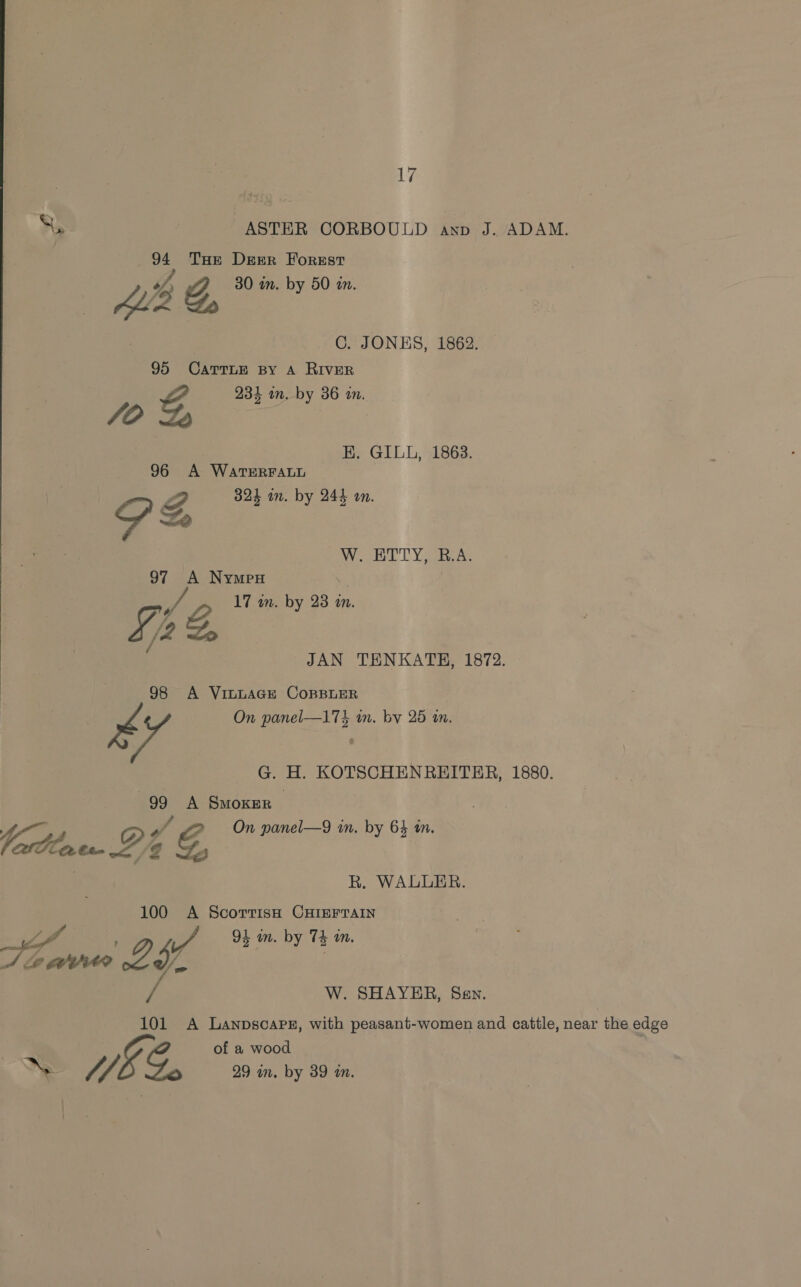 17
ASTER CORBOULD AND J. ADAM.
94 THE DEER FOREST
30 in. by 50 in.
C. JONES, 1862.
95 CATTLE BY A RIVER
23½ in. by 36 in.
10 G
E. GILL, 1863.
96 A WATERFALL
32½ in. by 24½ in.
9 G
W. ETTY, R.A.
97 A NYMPH
17 in. by 23 in.
JAN TENKATE, 1872.
98 A VILLAGE COBBLER
On panel—17½ in. by 25 in.
G. H. KOTSCHENREITER, 1880.
99 A SMOKER
On panel—9 in. by 6½ in.
2½ G
R. WALLER.
100 A SCOTTISH CHIEFTAIN
9½ in. by 7½ in.
W. SHAYER, SEN.
101 A LANDSCAPE, with peasant-women and cattle, near the edge
of a wood
29 in. by 39 in.